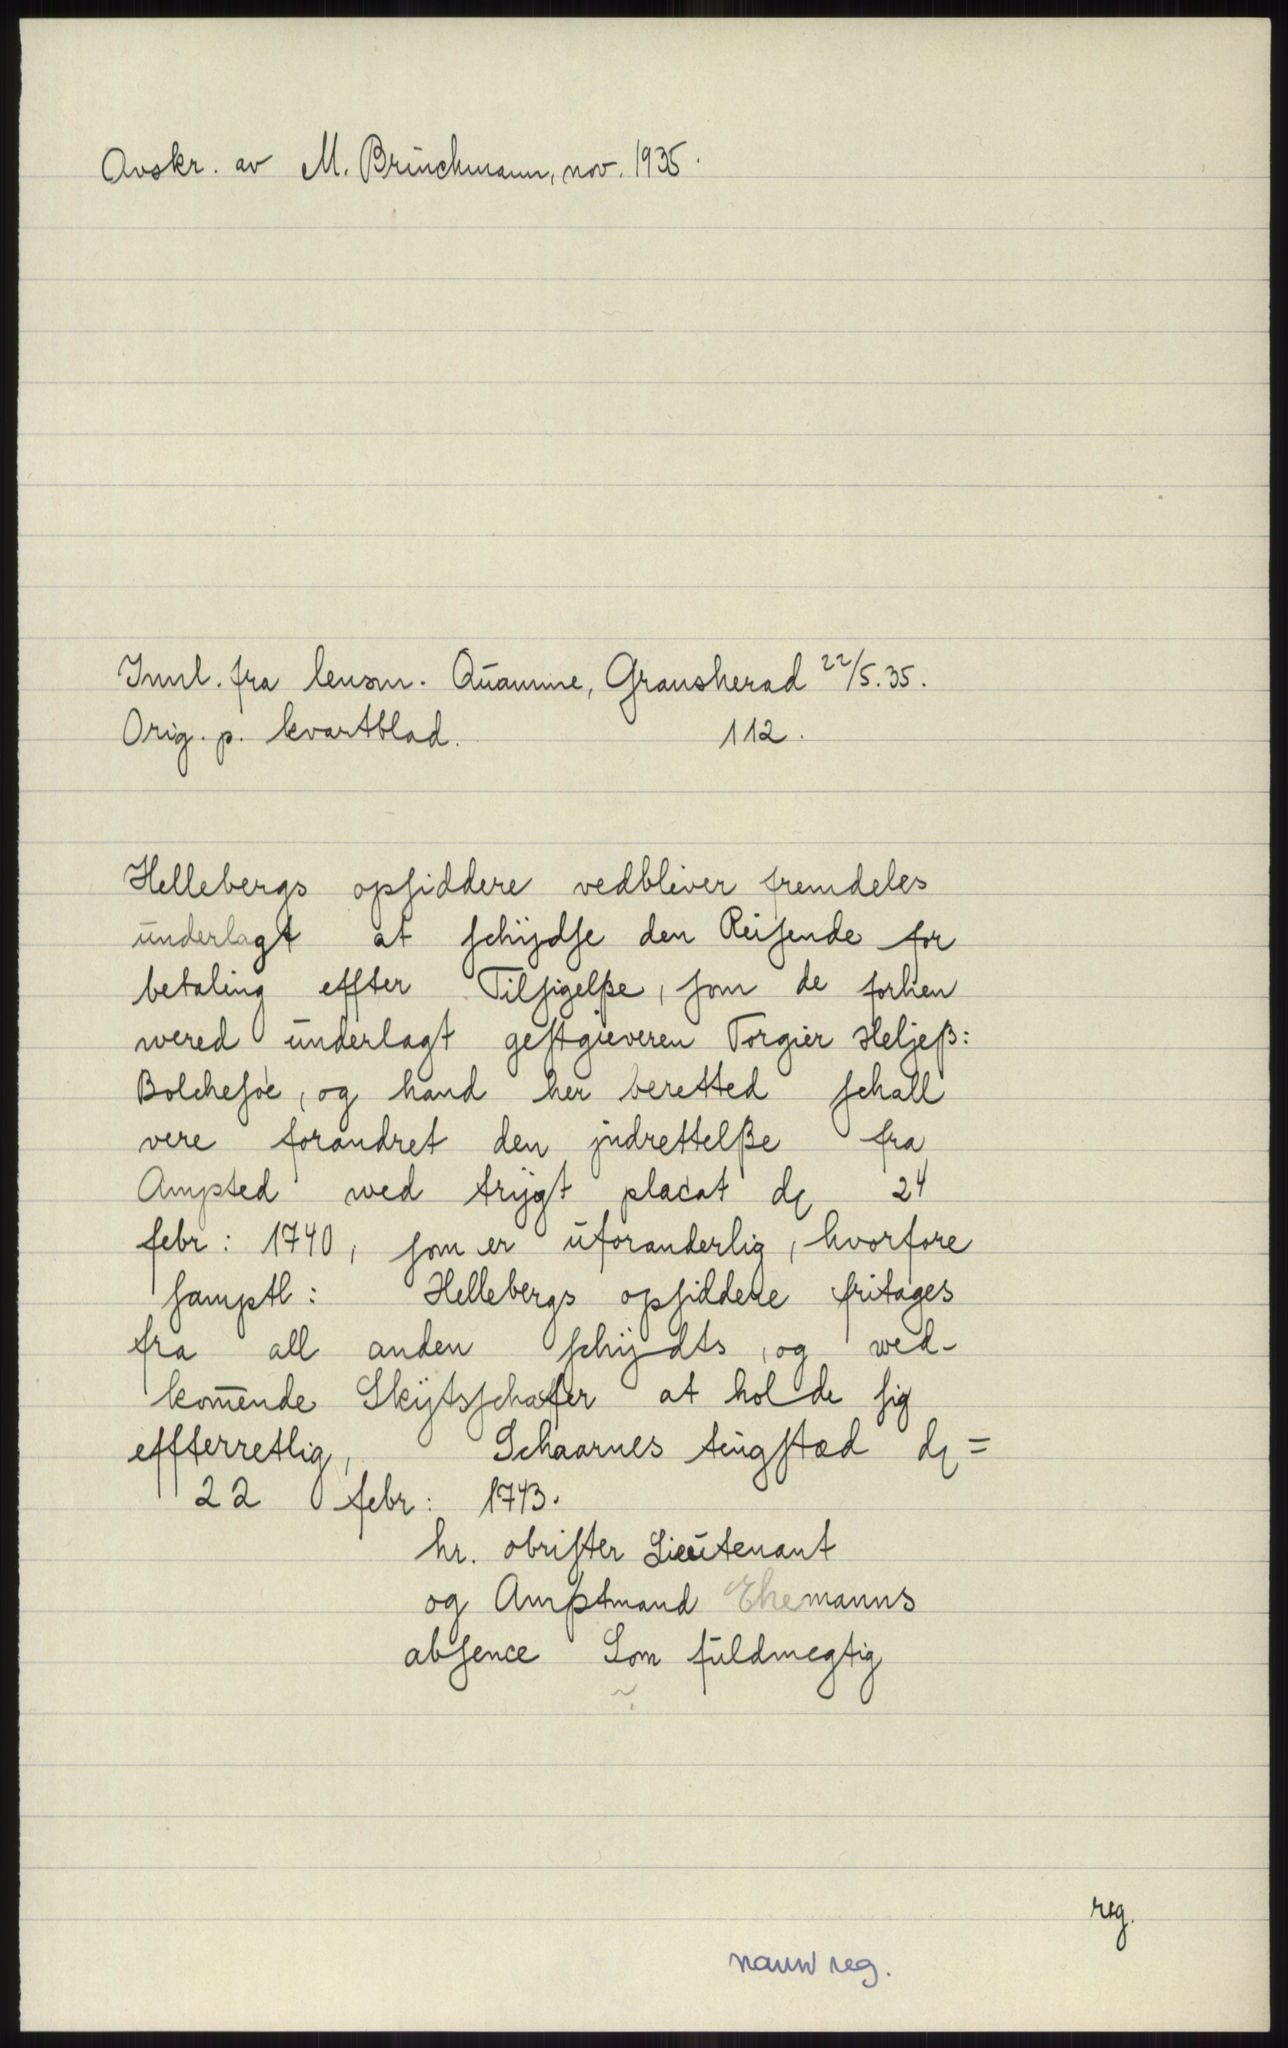 Avskr. av M. Brünchmann, nov. 1935.
Innl. fra lensm. Qūamme, Gransherad 22/5.35.
Orig. p. kvartblad. 112.
Hellebergs opsiddere vedbliver fremdeles
ūnderlagt at schÿdse den Reisende for
betaling effter Tilsigelße, som de forhen
wered ūnderlagt gestgieveren Torgier Heljeß:
Bolchesøe, og hand her beretted schall
vere forandret den jndrettelße fra
Ampted wed trÿgt placat dɇ 24
febr: 1740, som er ūforanderlig, hvorfore
samptl: Hellebergs opsiddere fritages
fra all anden schÿdts, og wed-
kom̄ende Skÿtsschaffer at holde sig
effterretlig, Schaarnes tingstæd dɇ =
22 febr: 1743.
hr. obrister Lieūtenant
og Amptmand Ehemanns
absence Som fūldmegtig
~
reg.
navn reg.